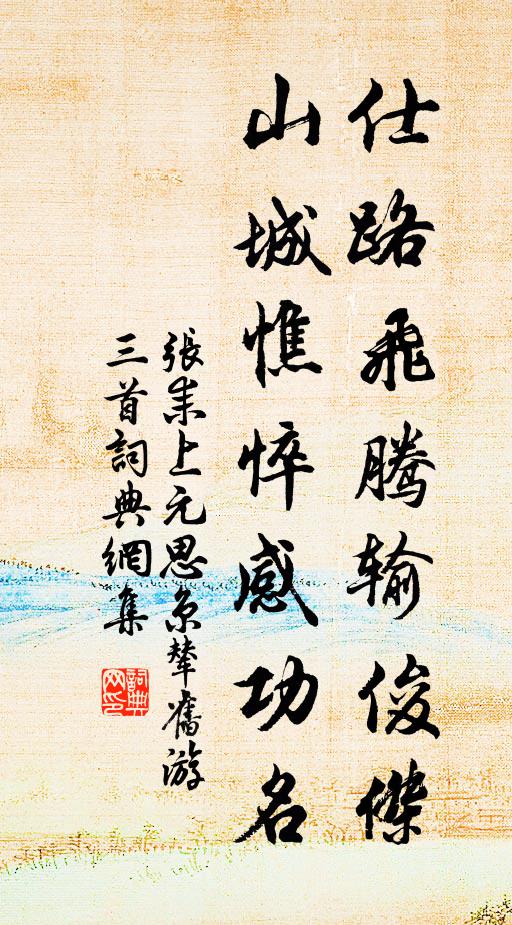 仕路飛騰输俊傑
山城憔悴感功名
張耒上元思京輦舊游
三首詞典網集
詞典网印